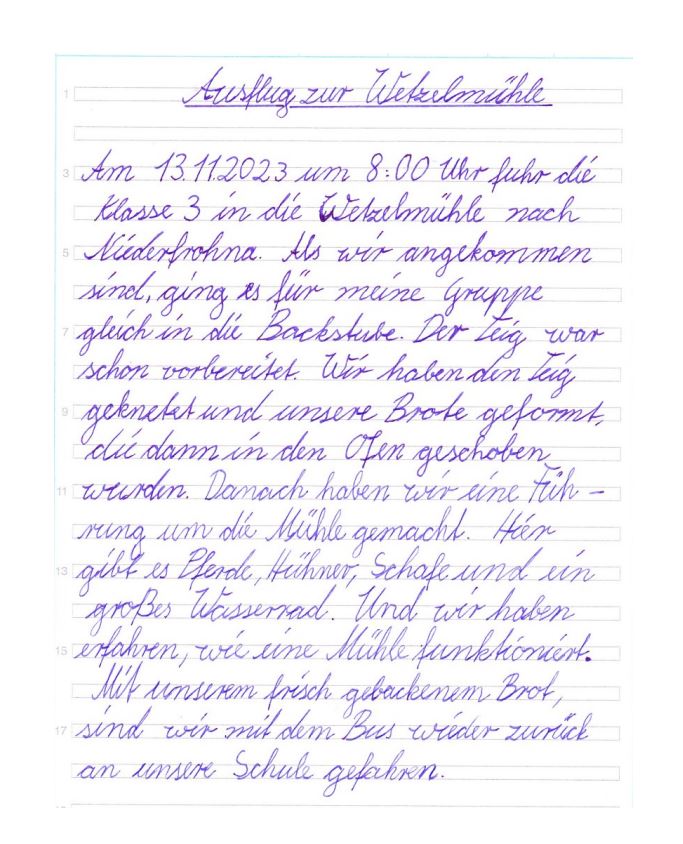 1 Ausflug zur Wetzelmühle
3 Am 13.11.2023 um 8:00 Uhr fuhr die
Klasse 3 in die Wetzelmühle nach
5 Niederfrohna. Als wir angekommen
sind, ging es für meine Gruppe
7 gleich in die Backstube. Der Teig war
schon vorbereitet. Wir haben den Teig
9 geknetet und unsere Brote geformt,
die dann in den Ofen geschoben
11 wurden. Danach haben wir eine Füh-
rung um die Mühle gemacht. Hier
13 gibt es Pferde, Hühner, Schafe und ein
großes Wasserrad. Und wir haben
15 erfahren, wie eine Mühle funktioniert.
Mit unserem frisch gebackenem Brot,
17 sind wir mit dem Bus wieder zurück
an unsere Schule gefahren.